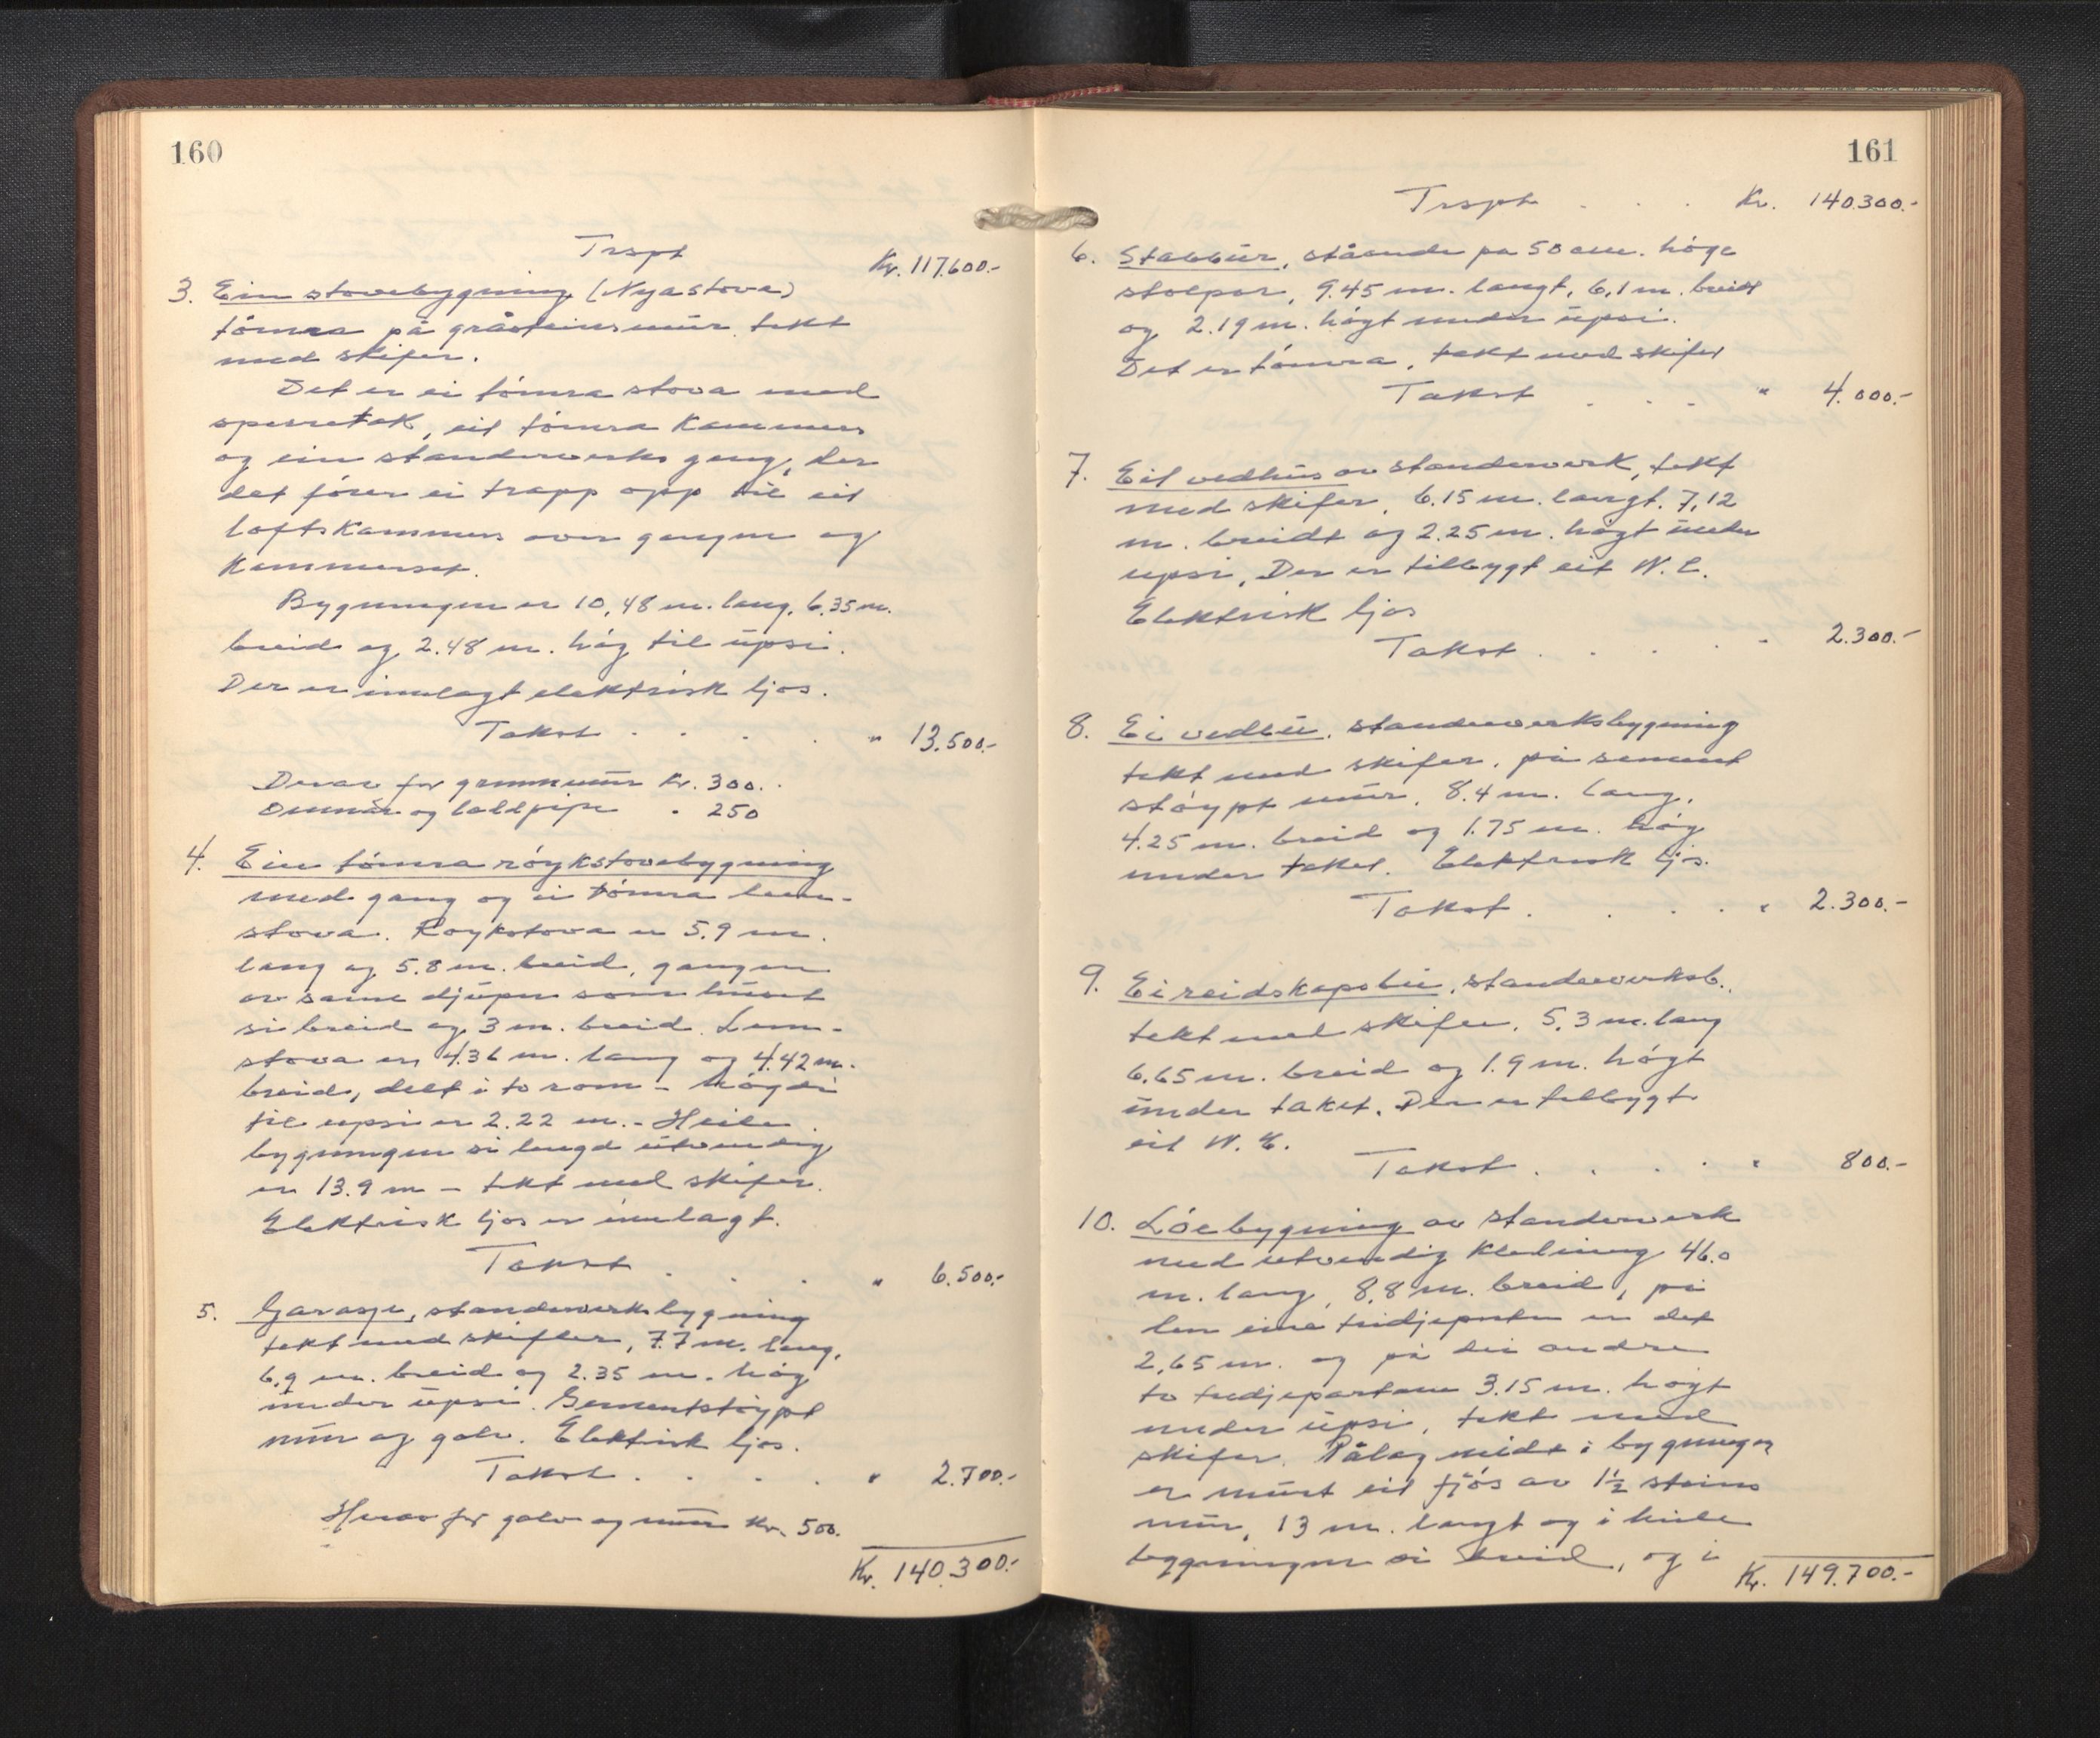 160
Trspt Kr. 117.600.-
3. Ein stovebygning (Nyastova)
tømra på gråsteinsmur tekt
med skifer.
Det er ei tømra stova med
sperretak, eit tømra kammers
og ein standerverks gang, der
det fører ei trapp opp til eit
loftskammers over gangen og
kammerset.
Bygningen er 10,48 m. lang, 6.35 m.
breid og 2.48 m. høg til upsi.
Der er innlagt elektrisk ljos.
Takst . . . . " 13.500.-
Derav for grunnmur Kr. 300.
Omnar og pipe " 250
4. Ein tømra røykstovebygning
med gang og ei tømra lem-
stova. Roykstova er 5.9 m.
lang og 5.8 m. breid, gangen
av same djupn som huset
si breid og 3 m. breid. Lem-
stova er 4.36 m. lang og 4.42 m.
breid, delt i to rom - høgdi
til upsi er 2.22 m. - Heile
bygningen si lengd utvendig
er 13.9 m - tekt med skifer.
Elektrisk ljos er innlagt.
Takst . . . " 6.500.-
5. Garasje, standerverksbygning
tekt med skifler, 7.7 m. lang,
6.9 m. breid og 2.35 m. høg
under upsi. Sementstøypt
mur og golv. Elektrisk ljos.
Takst . . . . " 2.700.-
Herav for golv og mur Kr. 500.
Kr. 140.300.-
161
Trspt . . . Kr. 140.300.-
6. Stabbur, ståande på 50 cm. høge
stolpar, 9.45 m. langt, 6,1 m. breidt
og 2.19 m. høgt under upsi.
Det er tømra, tekt med skifer
Takst . . . " 4.000.-
7. Eit vedhus av standerverk, tekt
med skifer, 6.15 m. langt. 7,12
m. breidt og 2.25 m. høgt under
upsi, Der er tilbygt eit W.C.
Elektrisk ljos
Takst . . . . - 2.300.-
8. Ei vedbu, standerverksbygning
tekt med skifer, på sement
støypt mur, 8.4 m. lang,
4.25 m. breid og 1.75 m. høg
under taket. Elektrisk ljos.
Takst . . . . " 2.300.-
9. Ei reidskapsbu, standerverksb.,
tekt med skifer, 5,3 m. lang
6.65 m. breid og 1.9 m. høgt
under taket. Der er tilbygt
eit W.C.
Takst . . . . " 800.-
10. Løebygning av standerverk
med utvendig kledning 46.0
m. lang, 8,8 m. breid, på
den eine tridjeparten er det
2,65 m. og på dei andre
to tridjepartane 3.15 m. høgt
under upsi, tekt med
skifer. Pålag midt i bygningen
er murt eit fjøs av 1½ steins
mur, 13 m. langt og i heile
bygningen si breid, og i
Kr. 149.700.-